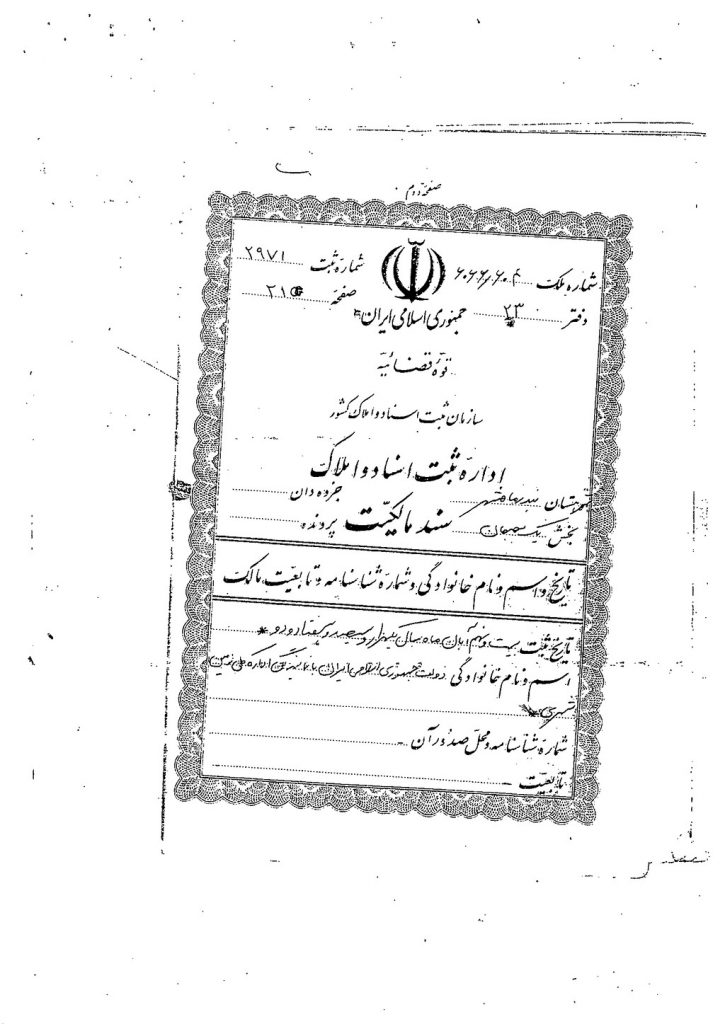 صفحهٔ دوم
شمارهٔ ملک ۶۰۶۶/۶۰۴ شمارهٔ ثبت ۲۹۷۱
دفتر ۲۳ صفحه ۲۱۵
جمهوری اسلامی ایران
قوهٔ قضائیه
سازمان ثبت اسناد و املاک کشور
ادارهٔ ثبت اسناد و املاک
شهرستان بندر ماهشهر جزوه‌دان
بخش یک پرونده
سند مالکیت
تاریخ و اسم و نام خانوادگی و شمارهٔ شناسنامه و تابعیت مالک
تاریخ ثبت بیست و نهم آبان ماه سال یکهزار و سیصد و هفتاد و دو
اسم و نام خانوادگی دولت جمهوری اسلامی ایران با نمایندگی اداره کل زمین
شهری
شمارهٔ شناسنامه و محل صدور آن
تابعیت